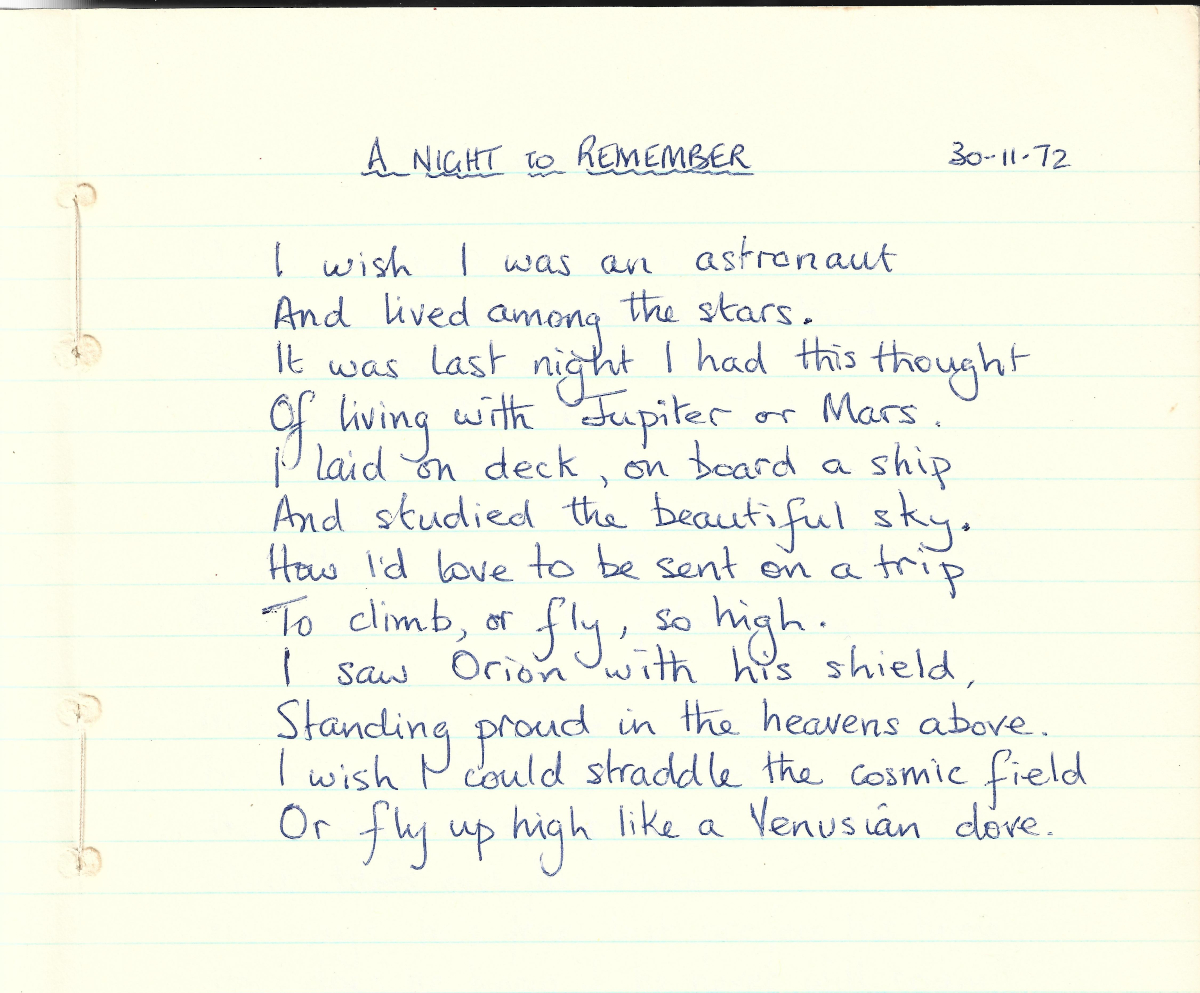 A NIGHT TO REMEMBER 30-11-72
I wish I was an astronaut
And lived among the stars.
It was last night I had this thought
Of living with Jupiter or Mars.
I laid on deck, on board a ship
And studied the beautiful sky.
How I'd love to be sent on a trip
To climb, or fly, so high.
I saw Orion with his shield,
Standing proud in the heavens above.
I wish I could straddle the cosmic field
Or fly up high like a Venusian dove.